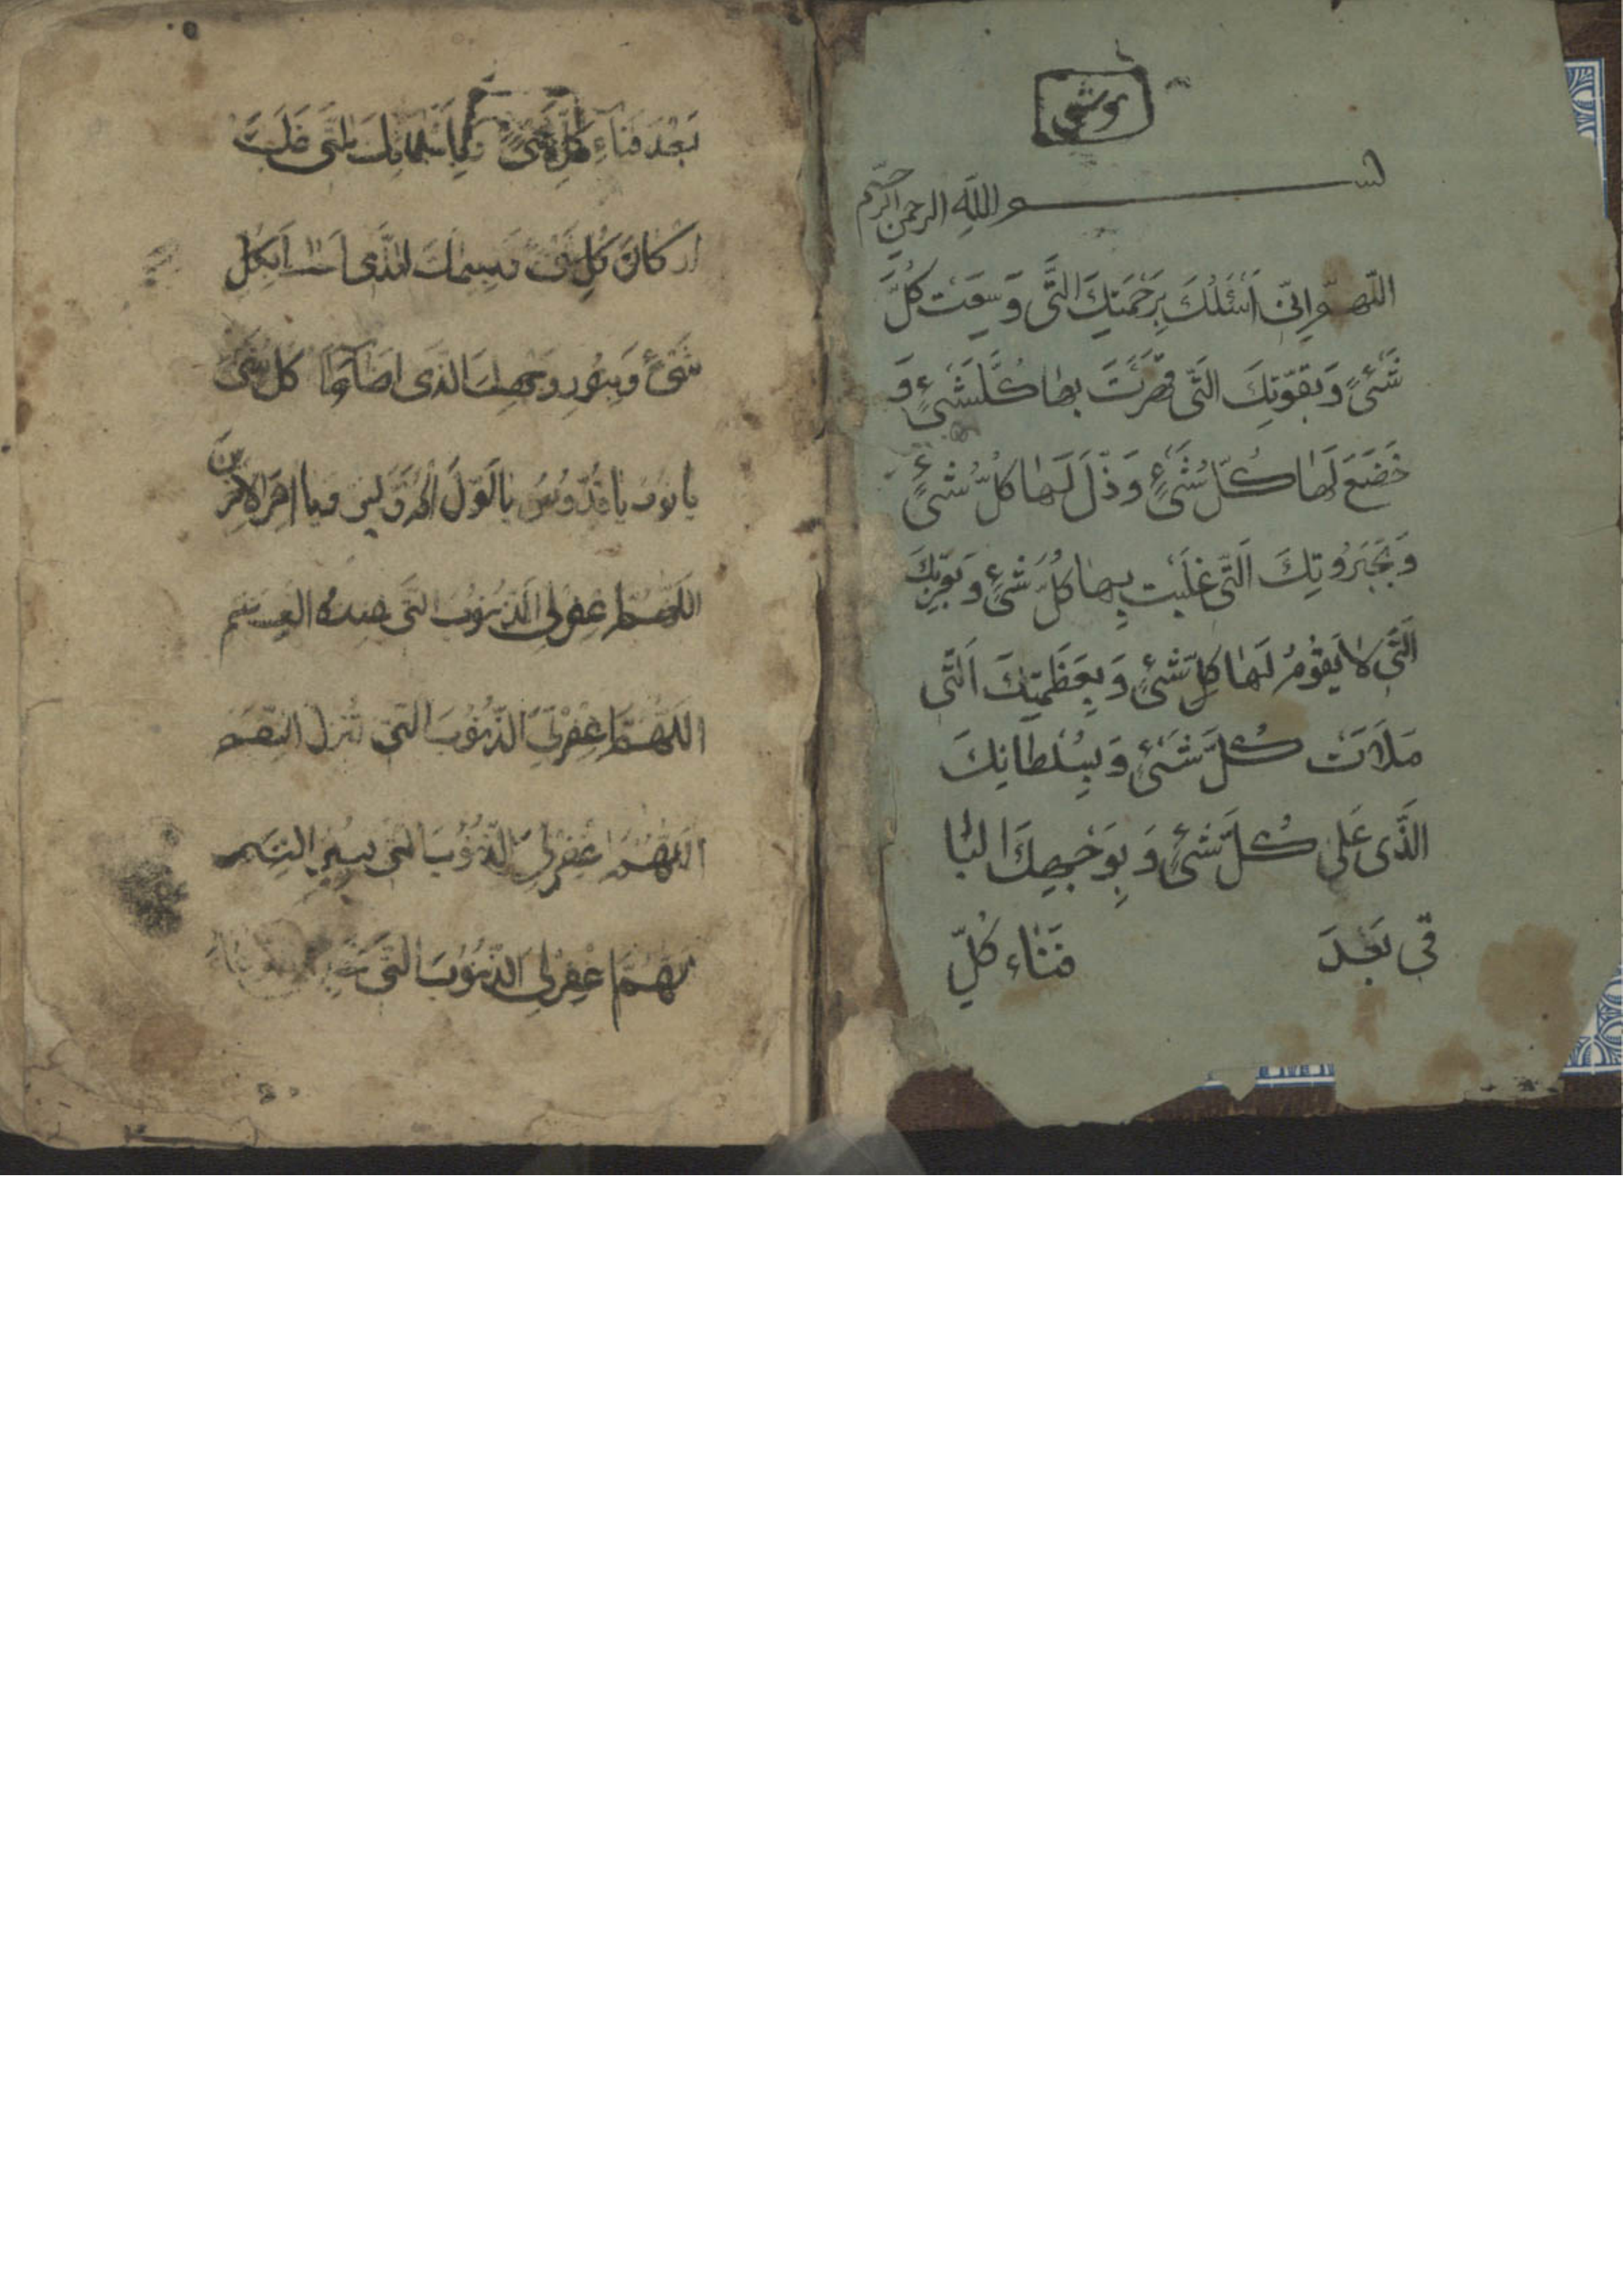 بسم الله الرحمن الرحيم
اللّهمّ اِنّى اَسْئَلُكَ بِرَحْمَتِكَ الَّتى وَسِعَتْ كُلَّ
شَىْءٍ وَبِقُوَّتِكَ الَّتى قَهَرْتَ بِهٰا كُلَّشَىْءٍ وَ
خَضَعَ لَهٰا كُلُّ شَىْءٍ وَذَلَّ لَهٰا كُلُّ شَىْءٍ
وَبِجَبَرُوتِكَ الَّتى غَلَبْتَ بِهٰا كُلَّ شَىْءٍ وَبِعِزَّتِكَ
الَّتى لا يَقُومُ لَهٰا كلِّ شَىْءٍ وَبِعَظَمَتِكَ الَّتى
مَلَاَتْ كُلَّ شَىْءٍ وَبِسُلْطانِكَ
الَّذى عَلى كُلَّ شَىْءٍ وَبِوَجْهِكَ البٰا
قى بَعْدَ فَنٰاء كُلِّ
بَعْدَ فَنٰاءِ كُلِّ شَىْءٍ الَّتى
اركانَ كُلِّ شَىْء الَّذى
شَىْءٍ وَبِنُورِ وَجْهِكَ الَّذى اضآء كل شَىْءٍ
يا نور يا قُدُّوسُ يا اَوَّلَ الاَوَّلين ويا اخرَ الاخرينَ
اللهمّ اغفرلى الذّنُوبَ الَّتى العصم
اللّهُمَّ اغْفِرْلى الذّنُوبَ الَّتى تُنزل النّقم
اللّهُمَّ اغْفِرْلى الذّنُوبَ الَّتى النعم
لّهمّ اغْفِرلى الذّنُوبَ الَّتى